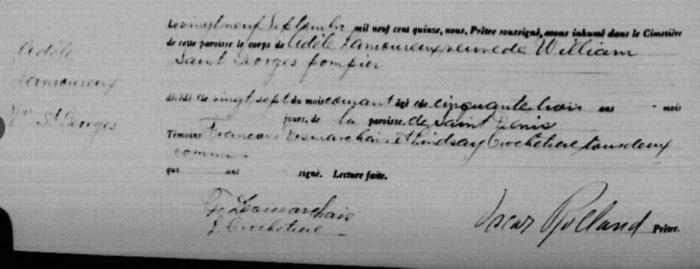 Adèle
Lamoureux
Wm St Georges
Le vingt neuf Septembre mil neuf cent quinze, nous, Prêtre soussigné, avons inhumé dans le Cimetière
de cette paroisse le corps de Adèle Lamoureux veuve de William
Saint Georges pompier
décédé le vingt sept du mois courant âgé de cinquante trois ans mois
jours, de la paroisse de Saint Denis
Témoins François Desmarchais & Lindsay Crochetiere tous deux
commis
qui ont signé. Lecture faite.
F. Desmarchais
L Crochetiere
Oscar Rolland Prêtre.